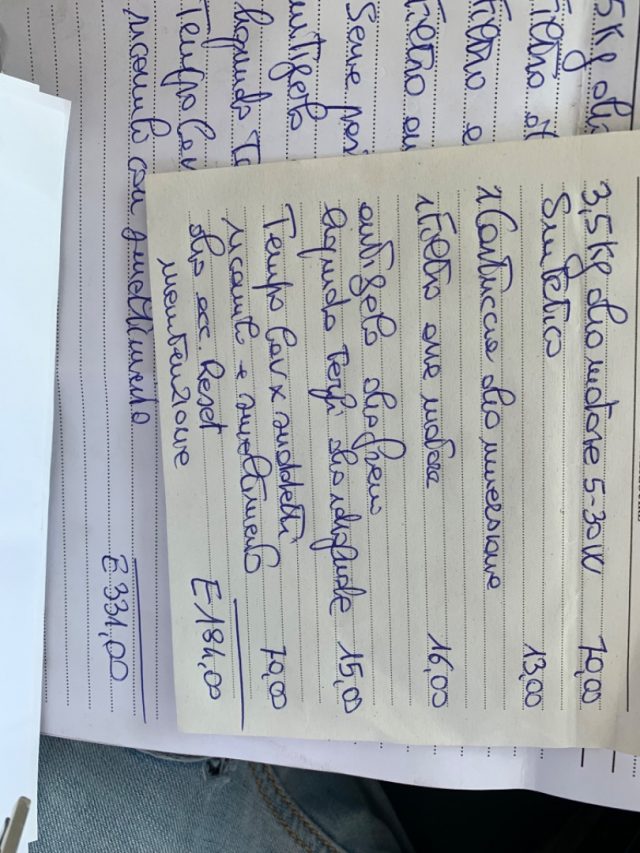 5 Kg oli
Filtro ol
Filtro a
Filtro
Serie pas
antigelo
liquido Te
Tempo lav
ricambi con smaltimento
E 331,00
3,5 Kg olio motore 5-30W 70,00
Sintetico
1 Cartuccia olio 13,00
1 Filtro aria 16,00
antigelo olio freni
liquido Tergi olio idroguide 15,00
Tempo lav x suddetti 70,00
ricambi + smaltimento
olio ecc. Reset E 184,00
manutenzione